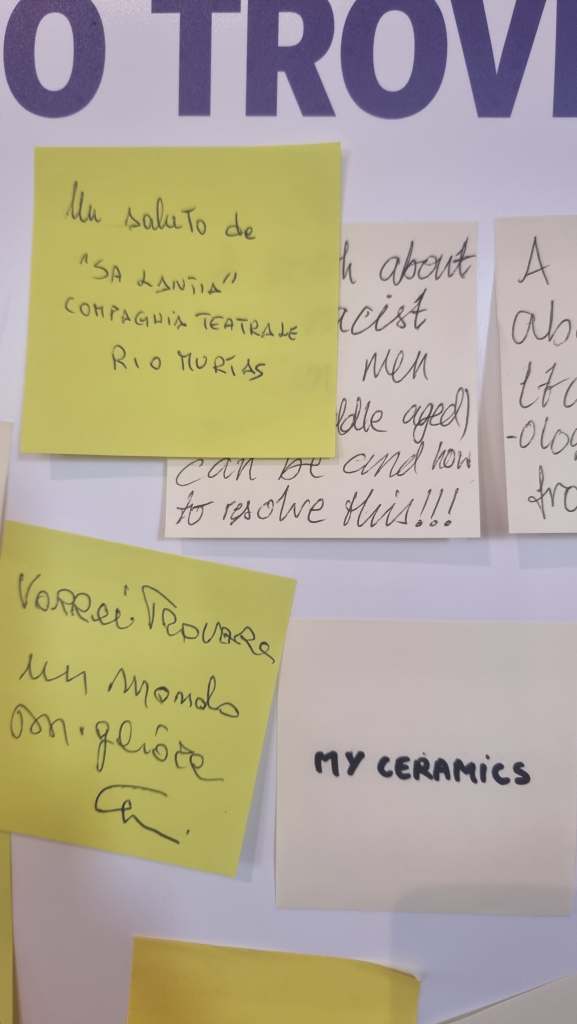 O TROV
Un saluto de
"SA LANTIA"
COMPAGNIA TEATRALE
RIO MURTAS
h about
acist
men
ddle aged)
can be and how
to resolve this!!!
A
ab
-olog
fro
Vorrei Trovare
un mondo
migliore
MY CERAMICS